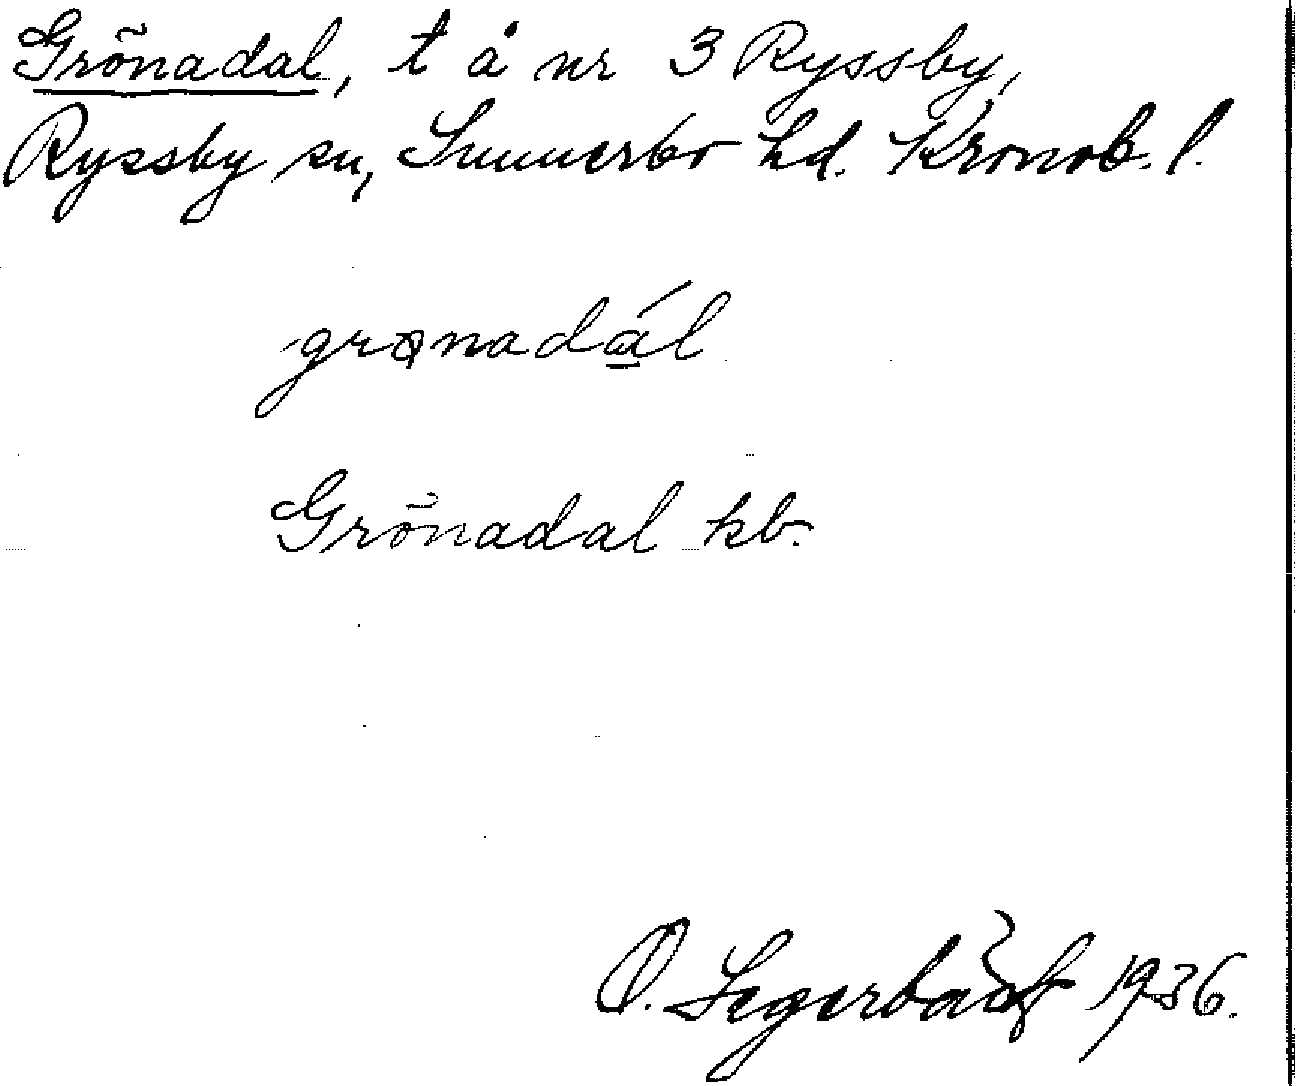 Grönadal, t å nr 3 Ryssby,
Ryssby sn, Sunnerbo hd. Kronob. l.
grønadál
Grönadal kb.
O. Segerbäck 1936.